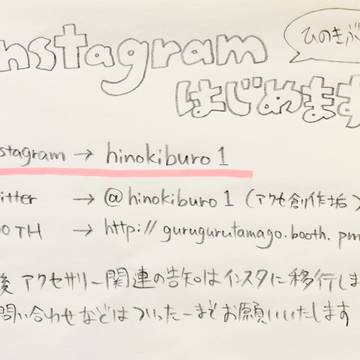 Instagram
ひのきぶ
はじめます
nstagram → hinokiburo1
itter → @hinokiburo1 (アクセ創作垢)
OOTH → http://gurugurutamago.booth.pm
後 アクセサリー関連の告知はインスタに移行しま
問い合わせなどはついったーまでお願いいたします